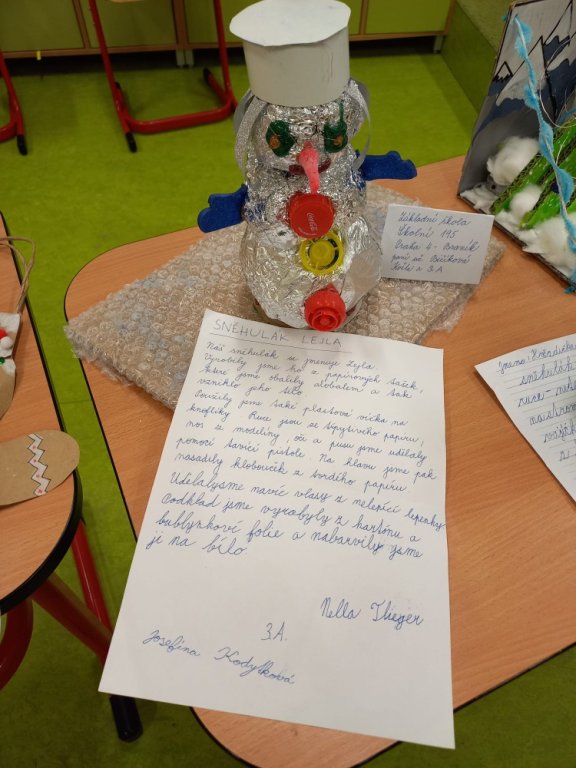 Základní škola
Školní 195
Praha 4 - Braník
paní uč. Bičíková
Košile z 3.A
SNĚHULÁK LEJLA
Náš sněhulák se jmenuje Lejla
Vyrobily jsme ho z papírových tašek
které jsme obalily alobalem a tak
vzniklo jeho tělo
Použily jsme také plastová víčka na
knoflíky. Ruce jsou ze třpytivého papíru,
nos ze modelíny, oči a pusu jsme udělaly
pomocí tavící pistole. Na hlavu jsme pak
nasadily klobouček z tvrdého papíru
Udělalysme navíc vlasy z nelepící lepenky
Podklad jsme vyrobyly z kartónu a
bublynkové folie a nabarvily jsme
ji na bílo
Nella Flieger
3.A.
Josefína Kodytková
Coca-Cola
sněhulák
ruce -